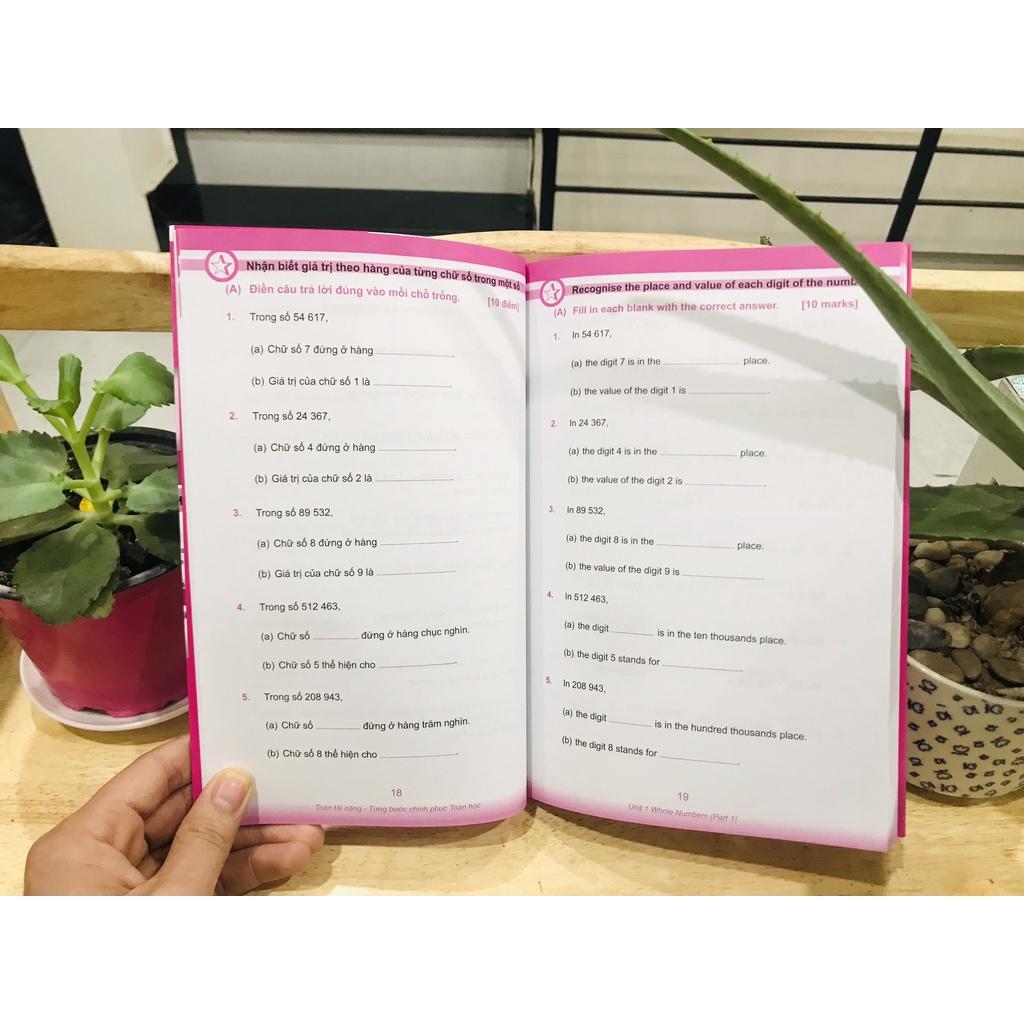 Nhận biết giá trị theo hàng của từng chữ số trong một số
(A) Điền câu trả lời đúng vào mỗi chỗ trống.
[10 điểm]
1. Trong số 54 617,
(a) Chữ số 7 đứng ở hàng ________.
(b) Giá trị của chữ số 1 là ________.
2. Trong số 24 367,
(a) Chữ số 4 đứng ở hàng ________.
(b) Giá trị của chữ số 2 là ________.
3. Trong số 89 532,
(a) Chữ số 8 đứng ở hàng ________.
(b) Giá trị của chữ số 9 là ________.
4. Trong số 512 463,
(a) Chữ số ________ đứng ở hàng chục nghìn.
(b) Chữ số 5 thể hiện cho ________.
5. Trong số 208 943,
(a) Chữ số ________ đứng ở hàng trăm nghìn.
(b) Chữ số 8 thể hiện cho ________.
18
Toán tài năng - Từng bước chinh phục Toán học
Recognise the place and value of each digit of the
(A) Fill in each blank with the correct answer. [10 marks]
1. In 54 617,
(a) the digit 7 is in the ________ place.
(b) the value of the digit 1 is ________.
2. In 24 367,
(a) the digit 4 is in the ________ place.
(b) the value of the digit 2 is ________.
3. In 89 532,
(a) the digit 8 is in the ________ place.
(b) the value of the digit 9 is ________.
4. In 512 463,
(a) the digit ________ is in the ten thousands place.
(b) the digit 5 stands for ________.
5. In 208 943,
(a) the digit ________ is in the hundred thousands place.
(b) the digit 8 stands for ________.
19
Unit 1 Whole Numbers (Part 1)